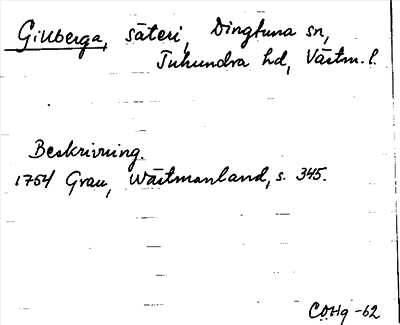 Gillberga, säteri, Dingtuna sn,
Tuhundra hd, Västm. l.
Beskrivning.
1754 Grau, Wästmanland, s. 345.
COHg -62